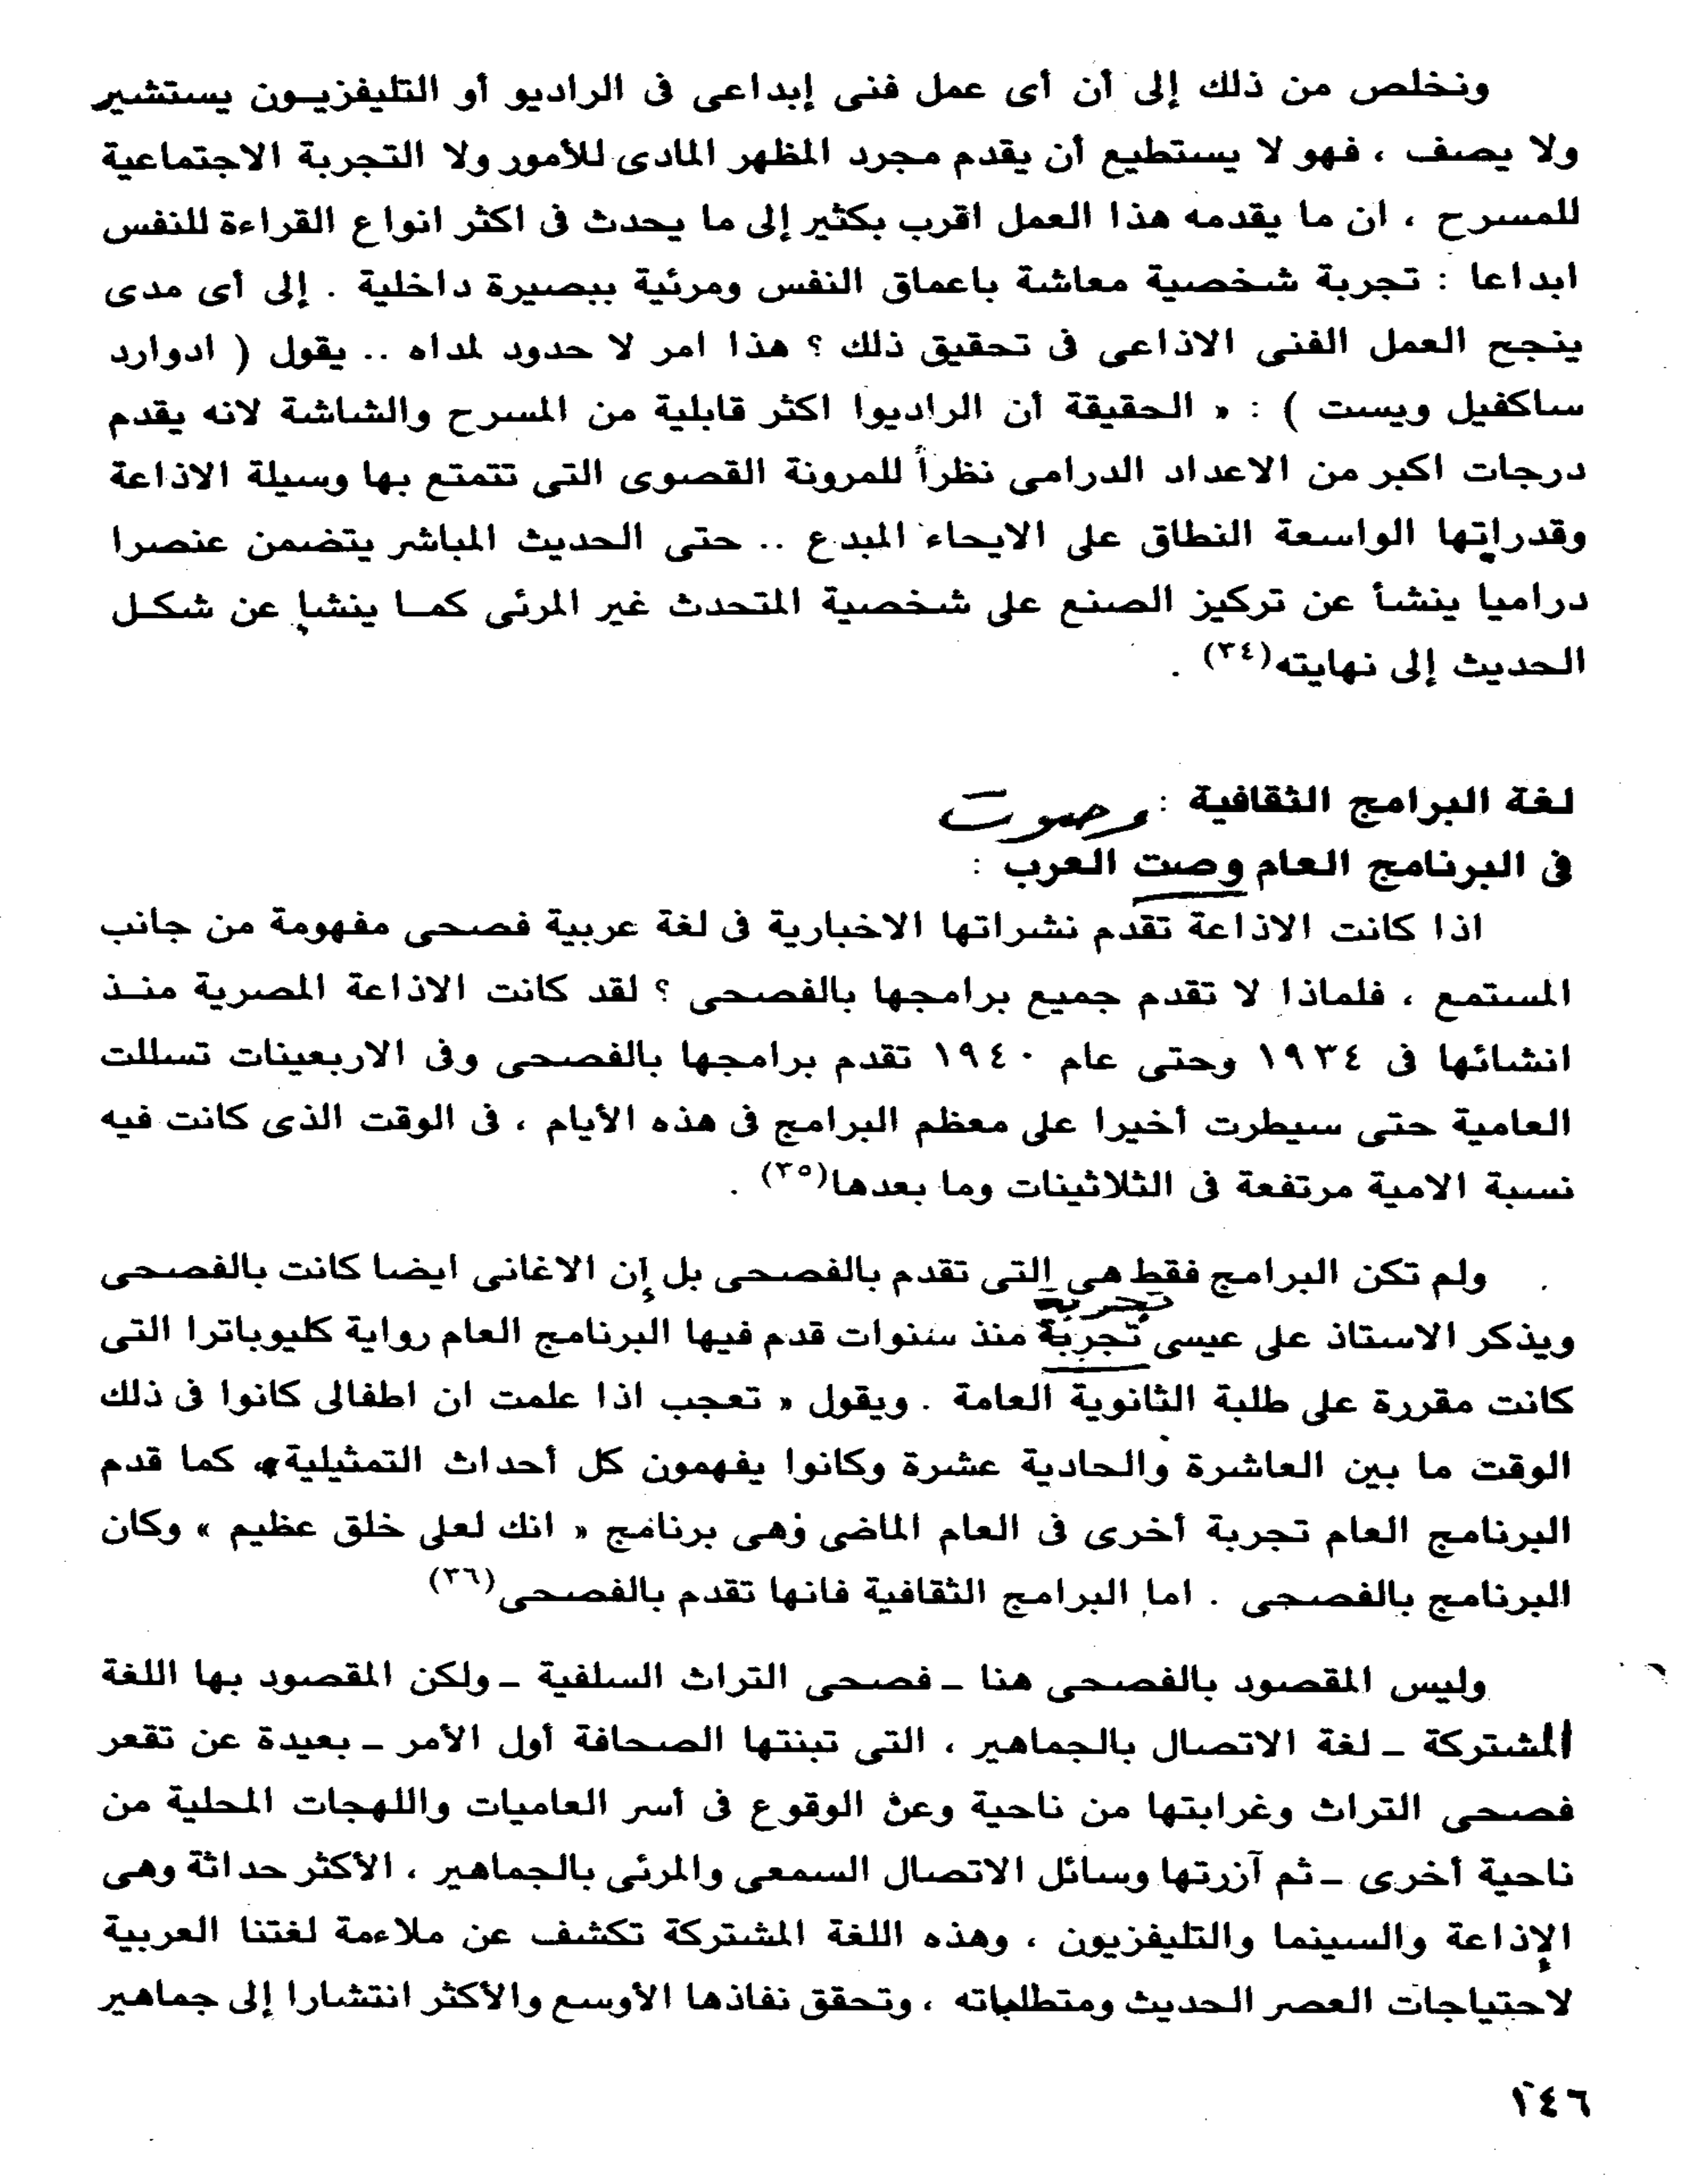 ونخلص من ذلك إلى أن أى عمل فنى إبداعى فى الراديو أو التليفزيـون يستشير
ولا يصف ، فهو لا يستطيع أن يقدم مجرد المظهر المادى للأمور ولا التجربة الاجتماعية
للمسرح ، ان ما يقدمه هذا العمل اقرب بكثير إلى ما يحدث فى اكثر انواع القراءة للنفس
ابداعا : تجربة شخصية معاشة باعماق النفس ومرئية ببصيرة داخلية . إلى أى مدى
ينجح العمل الفنى الاذاعى فى تحقيق ذلك ؟ هذا امر لا حدود لمداه .. يقول ( ادوارد
ساكفيل ويست ) : « الحقيقة أن الراديوا اكثر قابلية من المسرح والشاشة لانه يقدم
درجات اكبر من الاعداد الدرامى نظراً للمرونة القصوى التى تتمتع بها وسيلة الاذاعة
وقدراتها الواسعة النطاق على الايحاء المبدع .. حتى الحديث المباشر يتضمن عنصرا
دراميا ينشأ عن تركيز الصنع على شخصية المتحدث غير المرئى كمـا ينشإ عن شكـل
الحديث إلى نهايته(٣٤) .
لغة البرامج الثقافية :
وصوت
فى البرنامج العام وصت العرب :
اذا كانت الاذاعة تقدم نشراتها الاخبارية فى لغة عربية فصحى مفهومة من جانب
المستمع ، فلماذا لا تقدم جميع برامجها بالفصحى ؟ لقد كانت الاذاعة المصرية منـذ
انشائها فى ١٩٣٤ وحتى عام ١٩٤٠ تقدم برامجها بالفصحى وفى الاربعينات تسللت
العامية حتى سيطرت أخيرا على معظم البرامج فى هذه الأيام ، فى الوقت الذى كانت فيه
نسبة الامية مرتفعة فى الثلاثينات وما بعدها(٣٥) .
ولم تكن البرامج فقط هى التى تقدم بالفصحى بل إن الاغانى ايضا كانت بالفصحى
تجربة
ويذكر الاستاذ على عيسى تجربة منذ سنوات قدم فيها البرنامج العام رواية كليوباترا التى
كانت مقررة على طلبة الثانوية العامة . ويقول « تعجب اذا علمت ان اطفالى كانوا فى ذلك
الوقت ما بين العاشرة والحادية عشرة وكانوا يفهمون كل أحداث التمثيلية»، كما قدم
البرنامج العام تجربة أخرى فى العام الماضى وهى برنامج « انك لعلى خلق عظيم » وكان
البرنامج بالفصحى . اما البرامج الثقافية فانها تقدم بالفصحى(٣٦)
وليس المقصود بالفصحى هنا ـ فصحى التراث السلفية ـ ولكن المقصود بها اللغة
المشتركة ـ لغة الاتصال بالجماهير ، التى تبنتها الصحافة أول الأمر ـ بعيدة عن تقعر
فصحى التراث وغرابتها من ناحية وعن الوقوع فى أسر العاميات واللهجات المحلية من
ناحية أخرى ـ ثم آزرتها وسائل الاتصال السمعى والمرئى بالجماهير ، الأكثر حداثة وهى
الإذاعة والسينما والتليفزيون ، وهذه اللغة المشتركة تكشف عن ملاءمة لغتنا العربية
لاحتياجات العصر الحديث ومتطلباته ، وتحقق نفاذها الأوسع والأكثر انتشارا إلى جماهير
١٤٦